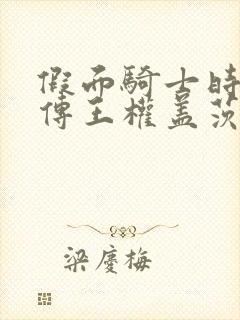 假面騎士時
傳王權蓋茨
梁慶梅